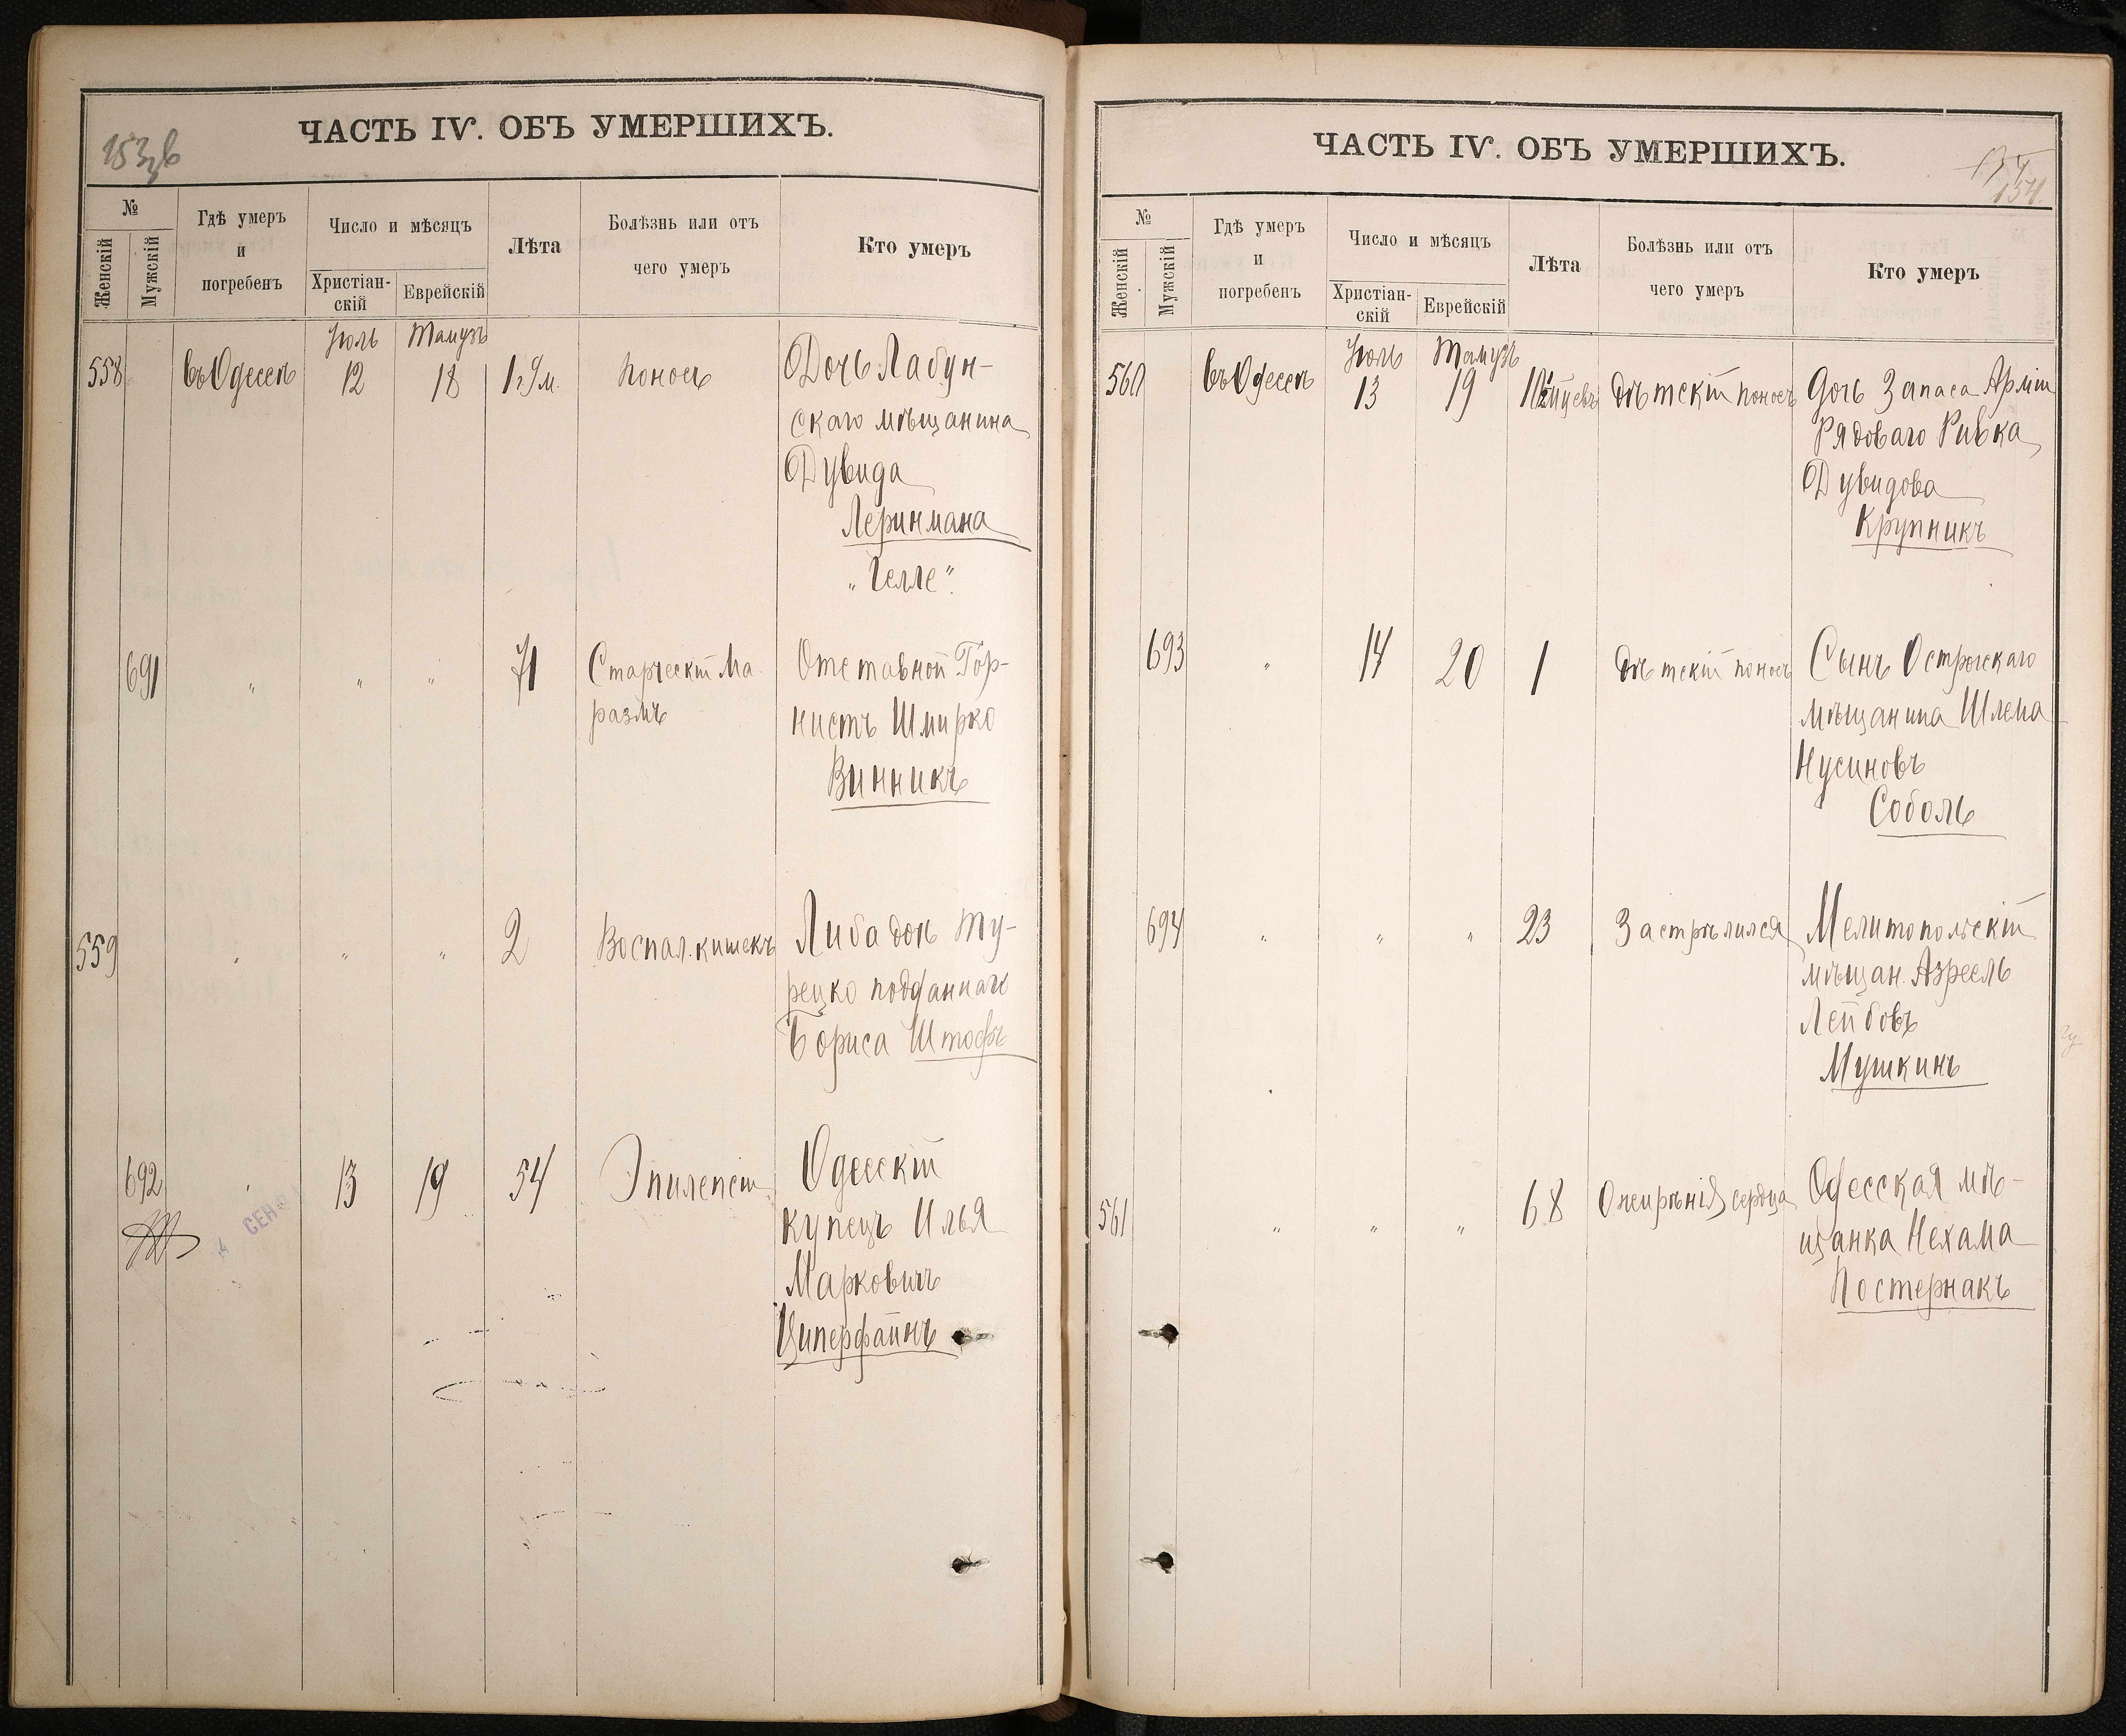 153об
ЧАСТЬ IV. ОБЪ УМЕРШИХЪ.
№
Женскій
Мужскій
Гдѣ умеръ
и
погребенъ
Число и мѣсяцъ
Христіан-
скій
Еврейскій
Лѣта
Болѣзнь или отъ
чего умеръ
Кто умеръ
Іюль Тамузъ
558 въ Одессѣ 12 18 1 г 9 м. Поносъ Дочь Лабун-
скаго мѣщанина
Дувида
Леринмана
„Гелле“.
691 " " " 71 Старческій Ма
размъ
Отставной Гор-
нистъ Шмирко
Винникъ
559 " " " 2 Воспал. кишекъ Либа дочь Ту-
рецко подданнаго
Бориса Штофъ
692 " 13 19 54 Эпилепсія Одесскій
купецъ Илья
Марковичъ
Циперфайнъ
4 СЕН
ЧАСТЬ IV. ОБЪ УМЕРШИХЪ.
154
154.
№
Женскій
Мужскій
Гдѣ умеръ
и
погребенъ
Число и мѣсяцъ
Христіан-
скій
Еврейскій
Лѣта
Болѣзнь или отъ
чего умеръ
Кто умеръ
Іюль Тамузъ
560 въ Одессѣ 13 19 Дѣтскій поносъ Дочь Запаса Арміи
Рядоваго Ривка
Дувидова
Крупникъ
693 " 14 20 1 Дѣтскій поносъ Сынъ Острожскаго
мѣщанина Шлема
Нусиновъ
Соболь
694 " " " 23 Застрѣлился Мелитопольскій
мѣщан. Азреель
Лейбовъ
Мушкинъ
561 " " " 68 Ожирѣнія сердца Одесская мѣ-
щанка Нехама
Постернакъ